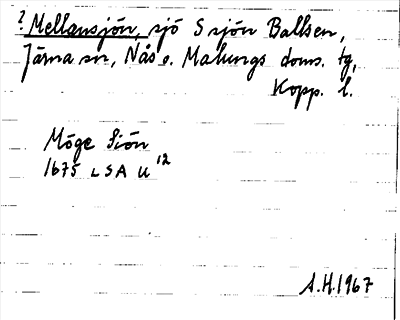 ? Mellansjön, sjö S sjön Ballsen,
Järna sn, Nås o. Malungs doms. tg,
Kopp. l.
Möge Siön
1675 LSA U 12
A.H. 1967